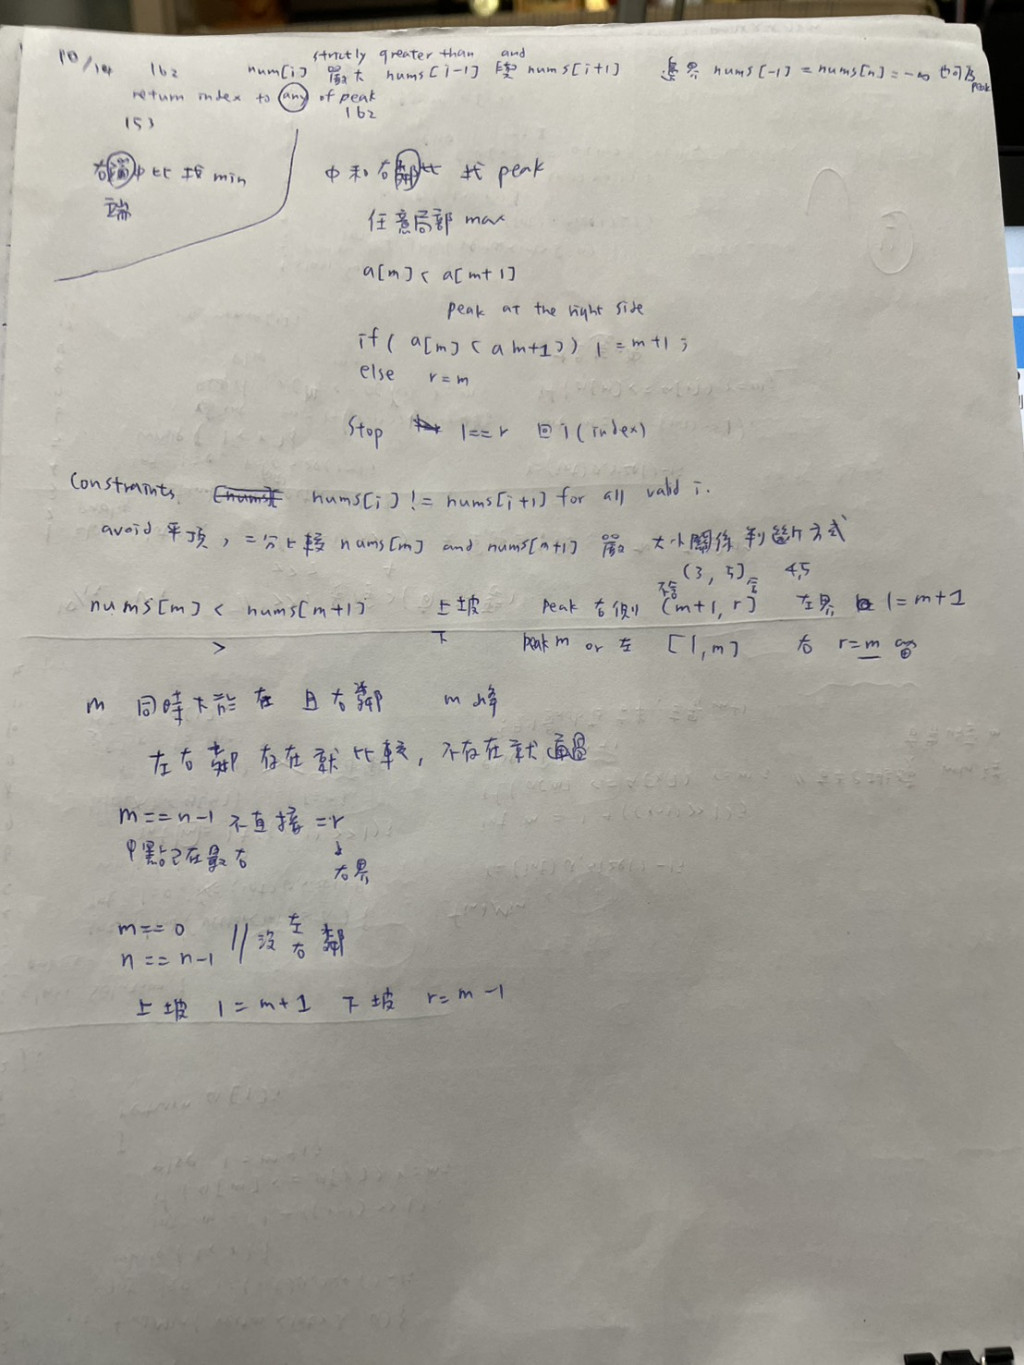 10/14 162 num[i] 嚴大 strictly greater than nums[i-1] and 與 nums[i+1] 邊界 nums[-1] = nums[n] = -∞ 也可為 peak
return index to any of peak
153
162
右端中比找 min
端
中和右鄰比 找 peak
任意局部 max
a[m] < a[m+1]
peak at the right side
if( a[m] < a m+1]) l = m+1;
else r=m
Stop l==r 回 l (index)
Constraints nums[i] != nums[i+1] for all valid i.
avoid 平頂, 二分比較 nums[m] and nums[m+1] 嚴 大小關係 判斷方式
(3, 5] 4,5
不含 含
nums[m] < nums[m+1] 上坡 peak 右側 (m+1, r] 左界 l=m+1
> 下 peak m or 左 [l, m] 右 r=m 留
m 同時大於 左 且 右鄰 m 峰
左右鄰 存在就比較, 不存在就通過
m==n-1 不直接 =r
中點已在最右 右界
m==0 // 沒 左 鄰
n==n-1 右
上坡 l=m+1 下坡 r=m-1